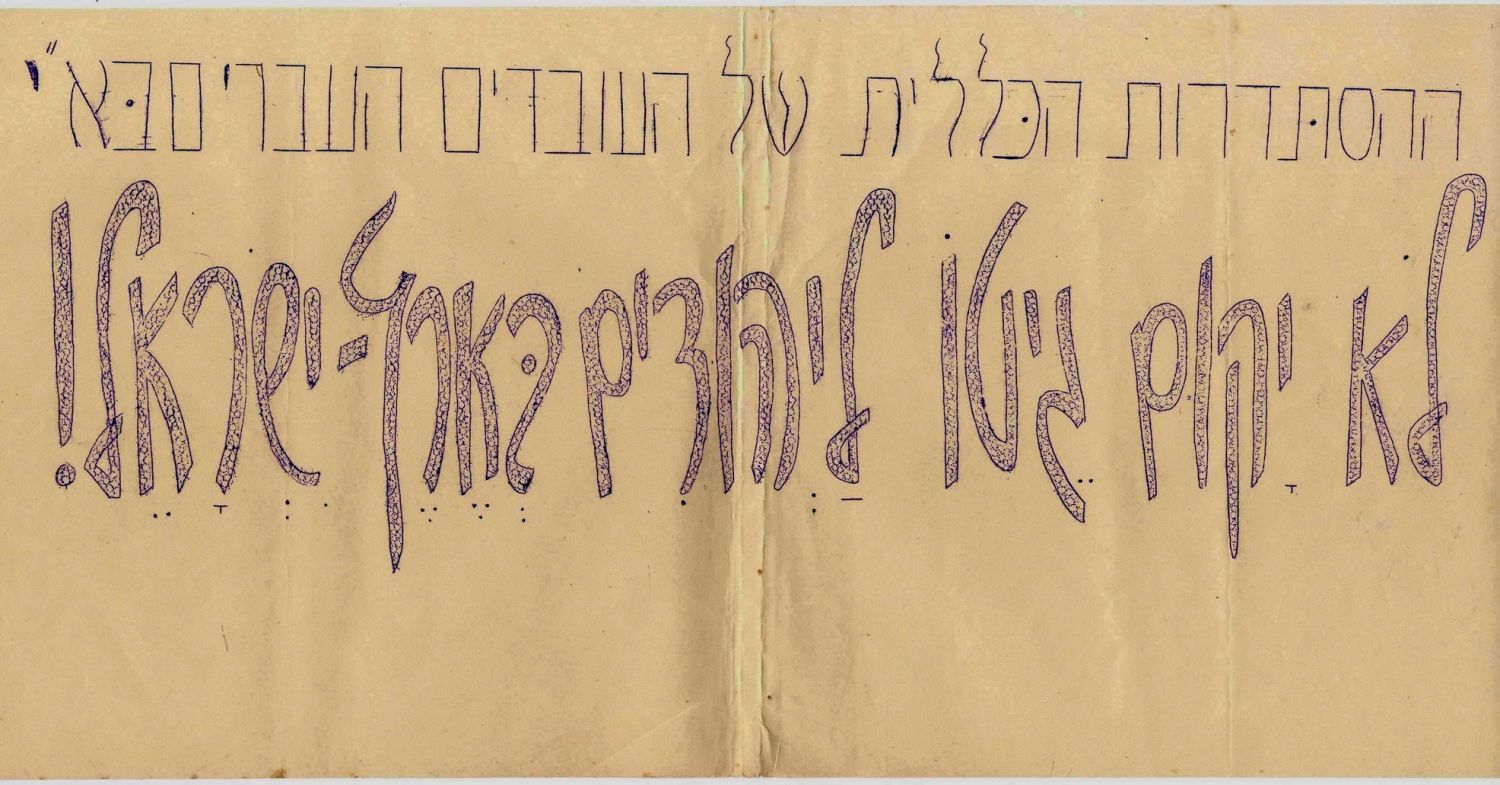 ההסתּדרות הכּללית של העובדים העברים בּא"י
לֹא יָקום גֵיטוֹ לַיְהודִים בְּאֶרֶץ-יִשְׂרָאֵל!